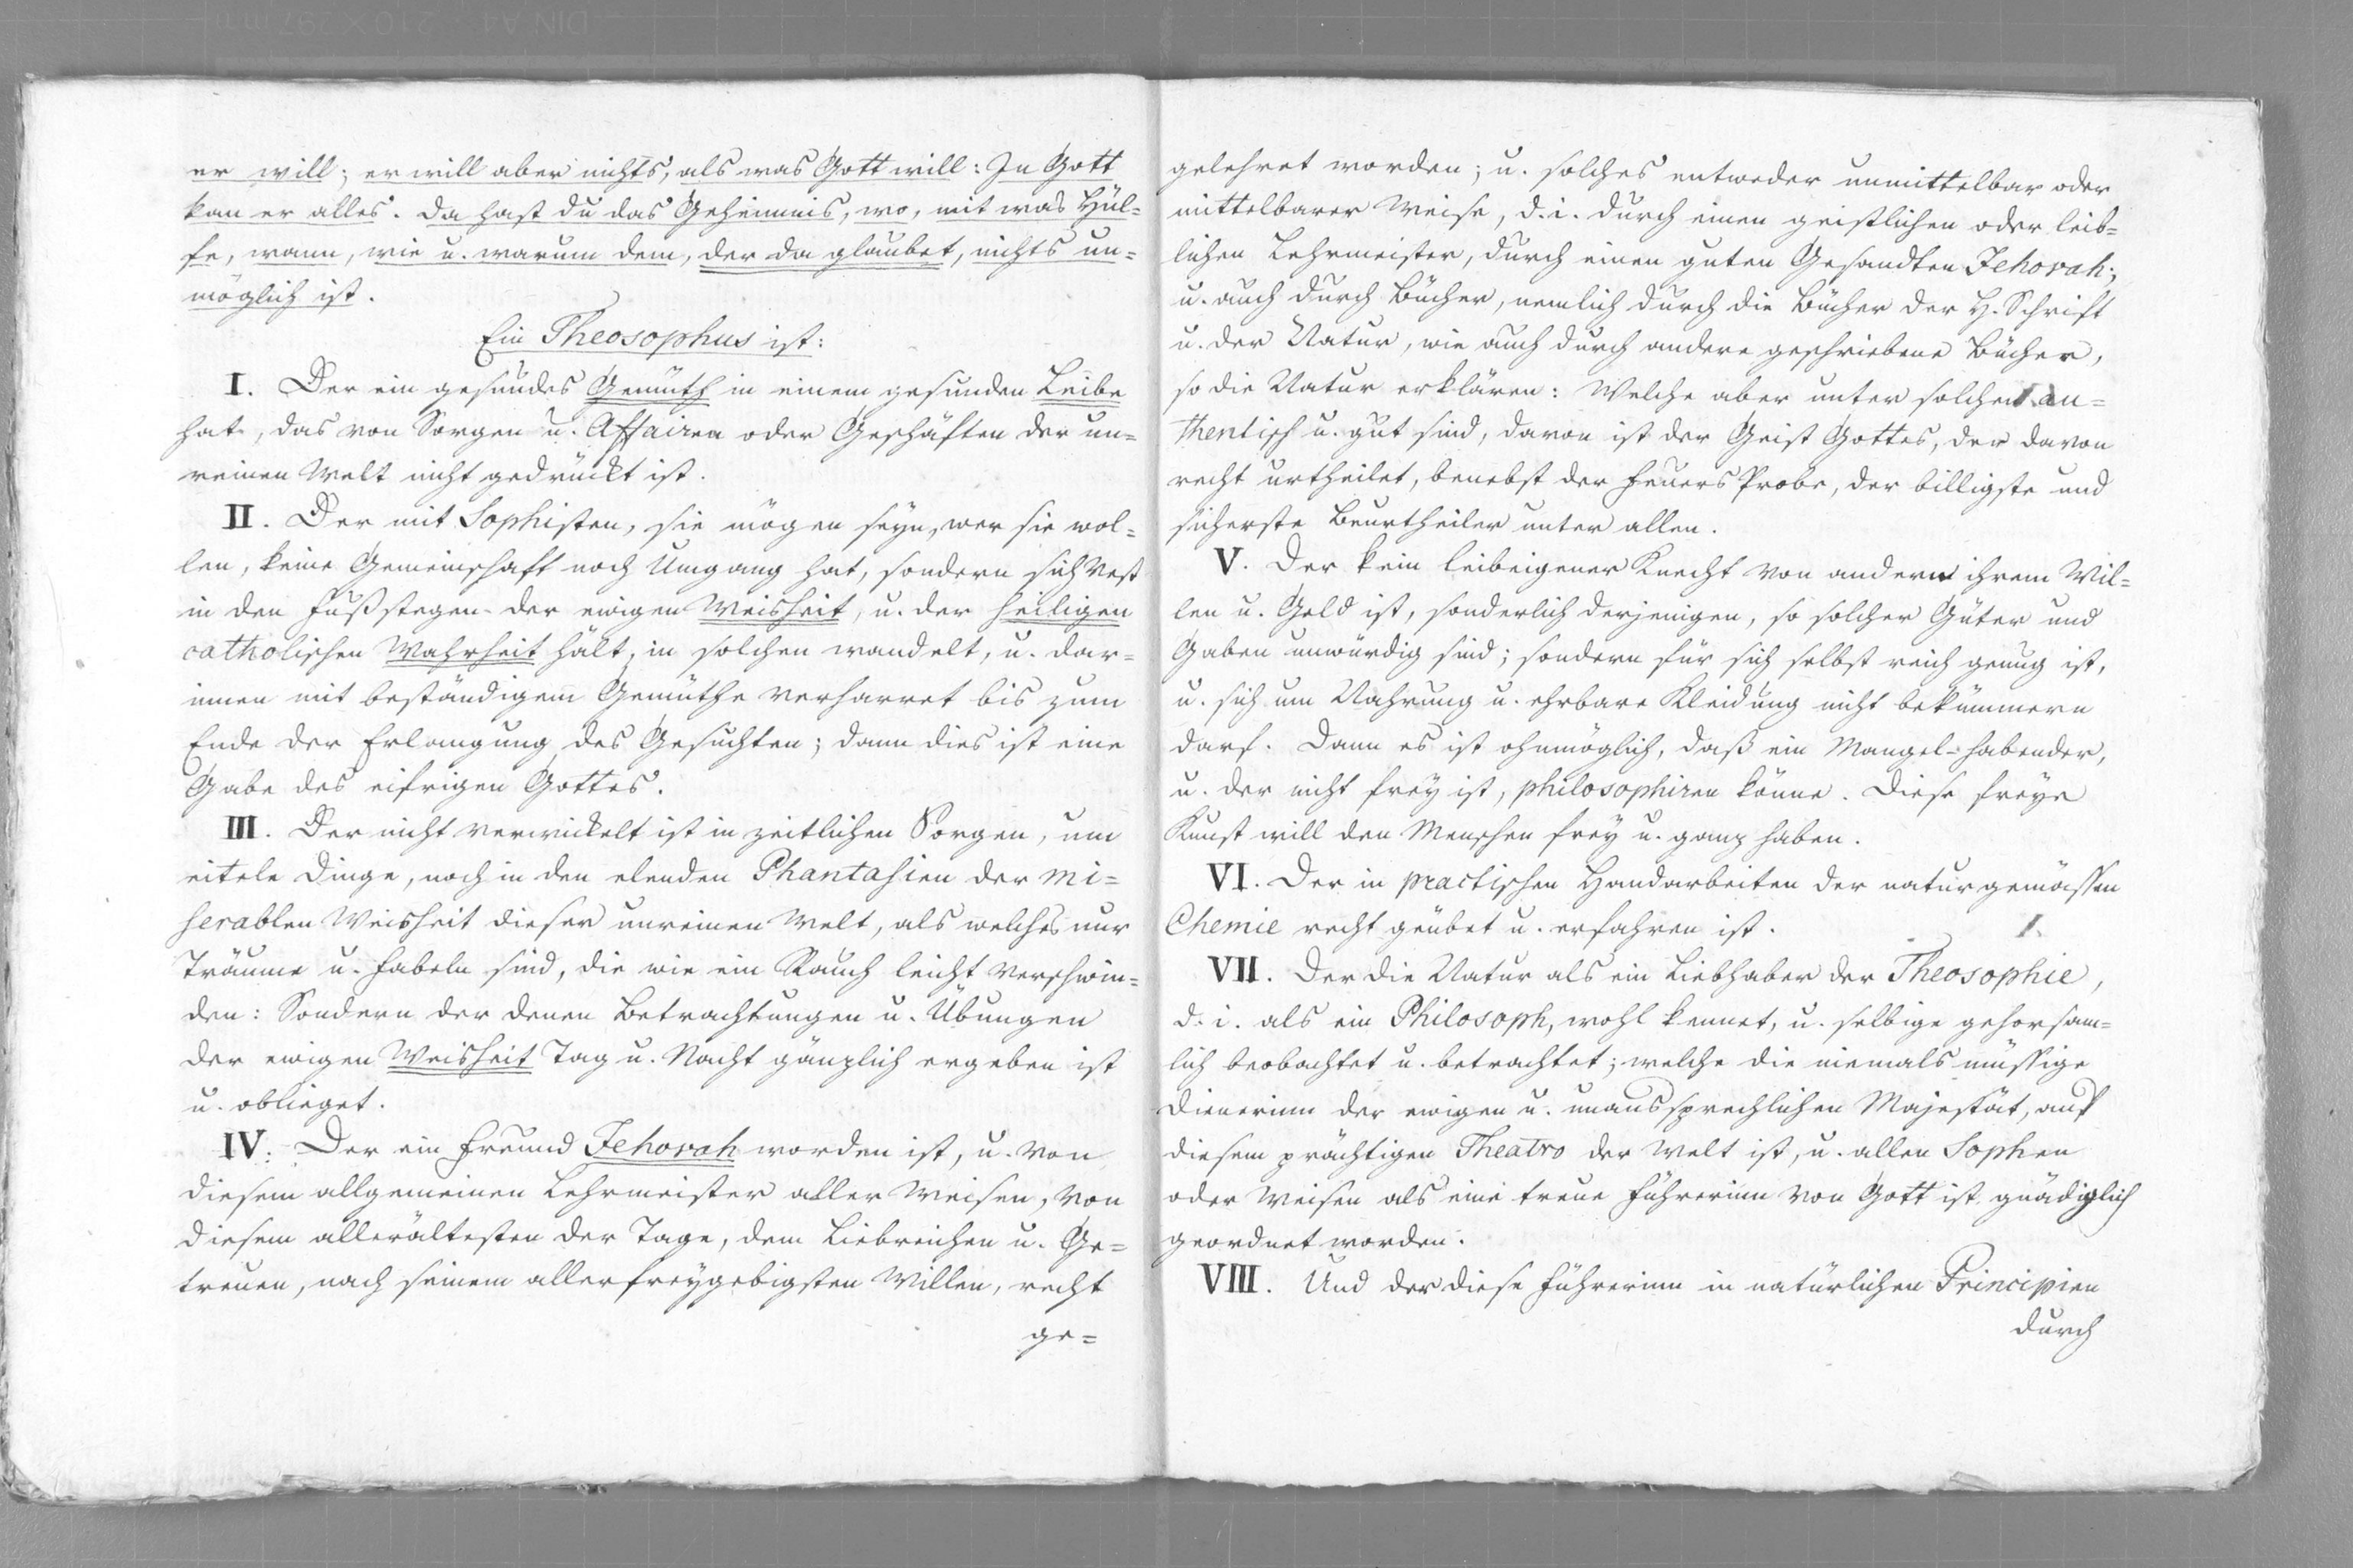 er will; er will aber nichts, als was Gott will: In Gott
kan er alles. Da hast du das Geheimnis, wo, mit was Hül=
fe, wann, wie u. warum dem, der da glaubet, nichts un=
möglich ist.
Ein Theosophus ist:
I. Der ein gesundes Gemüth in einem gesunden Leibe
hat, das von Sorgen u. Affairen oder Geschäften der un=
reinen Welt nicht gedrückt ist.
II. Der mit Sophisten, sie mögen seyn, wer sie wol=
len, keine Gemeinschaft noch Umgang hat, sondern sich vest
in den Fußstegen der ewigen Weisheit, u. der heiligen
catholischen Wahrheit hält, in solchen wandelt, u. dar=
innen mit beständigem Gemüthe verharret bis zum
Ende der Erlangung des Gesuchten; dann dies ist eine
Gabe des eifrigen Gottes.
III. Der nicht verwickelt ist in zeitlichen Sorgen, um
eitele Dinge, noch in den elenden Phantasien der mi=
serablen Weisheit dieser unreinen Welt, als welches nur
Träume u. Fabeln sind, die wie ein Rauch leicht verschwin=
den: Sondern der denen Betrachtungen u. Übungen
der ewigen Weisheit Tag u. Nacht gänzlich ergeben ist
u. oblieget.
IV. Der ein Freund Jehovah worden ist, u. von
diesem allgemeinen Lehrmeister aller Weisen, von
diesem allerältesten der Tage, dem Liebreichen u. Ge=
treuen, nach seinem allerfreygebigsten Willen, recht
ge=
gelehret worden; u. solches entweder unmittelbar oder
mittelbarer Weise, d. i. durch einen geistlichen oder leib=
lichen Lehrmeister, durch einen guten Gesandten Jehovah;
u. auch durch Bücher, nemlich durch die Bücher der H. Schrift
u. der Natur, wie auch durch andere geschriebene Bücher,
so die Natur erklären: Welche aber unter solchen au=
thentisch u. gut sind, davon ist der Geist Gottes, der davon
recht urtheilet, benebst der Feuers Probe, der billigste und
sicherste Beurtheiler unter allen.
V. Der kein leibeigener Knecht von andern ihrem Wil=
len u. Geld ist, sonderlich derjenigen, so solcher Güter und
Gaben unwürdig sind; sondern für sich selbst reich genug ist,
u. sich um Nahrung u. ehrbare Kleidung nicht bekümmern
darf. Dann es ist ohnmöglich, daß ein Mangel-habender,
u. der nicht frey ist, philosophiren könne. Diese freye
Kunst will den Menschen frey u. ganz haben.
VI. Der in practischen Handarbeiten der naturgemässen
Chemie recht geübet u. erfahren ist.
VII. Der die Natur als ein Liebhaber der Theosophie,
d. i. als ein Philosoph, wohl kennet, u. selbige gehorsam=
lich beobachtet u. betrachtet; welche die niemals müssige
Dienerinn der ewigen u. unaussprechlichen Majestät, auf
diesem prächtigen Theatro der Welt ist, u. allen Sophen
oder Weisen als eine treue Führerinn von Gott ist gnädiglich
geordnet worden.
VIII. Und der diese Führerinn in natürlichen Principien
durch